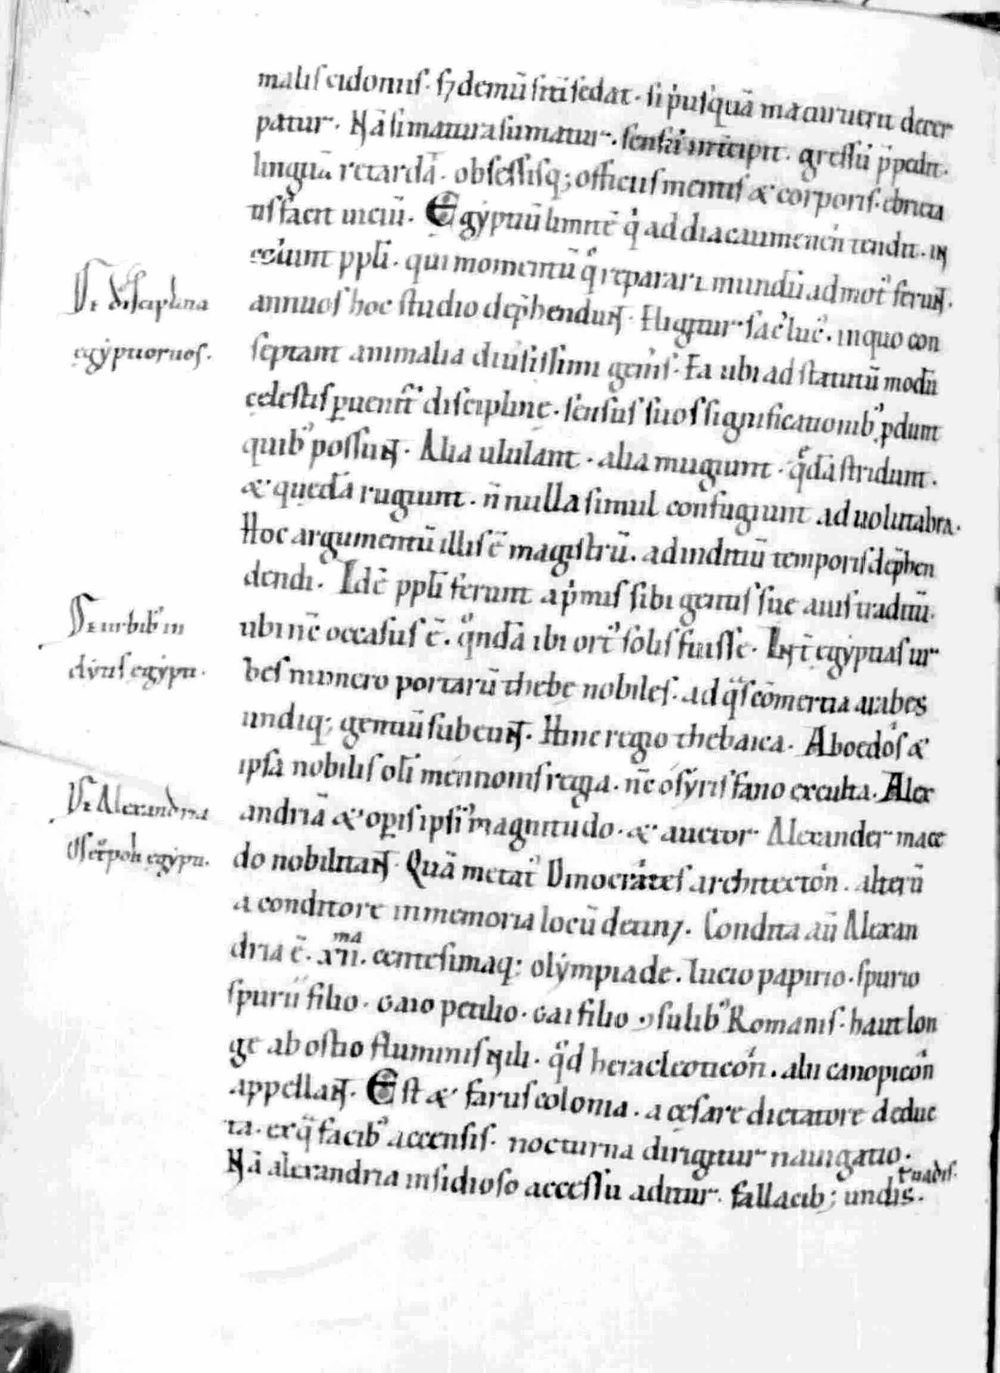 malis cidoniis · s; demū sitī sedat · si p̓usquā maturuerit decer
patur · Nā si matura sumatur · sensū intcipit · gressū p̄pedit ·
linguā retardā · obsessisq; officiis mentis & corporis · ebrieta
tis facit uiciū · Egẏptiū limitē q̓ ad diacaumenen tendit · in
colunt ppl̄i · qui momentū q̊ reparari mundū ad mot᾽ ferunt ·
De disciplina
annuos hoc studio dep̄hendunt · Eligitur sac᾽ luc᾽ · in quo con
egẏptiorum ·
septant animalia diuˢissimi genˢis · Ea ubi ad statutū modū
cęlestis ꝑuenit᾽ disciplinę · sensus suos significationib᾽ pdunt
quib᾽ possunt · Alia ululant · alia mugiunt · q̄dā stridunt ·
& quedā rugiunt · n̄ nulla simul confugiunt ad uolutabra ·
Hoc argumentū illis ē magistrū · ad inditiū temporis dep̄hen
dendi · Idē ppl̄i ferunt a p̓mis sibi gentis sue auis traditū ·
De urbib᾽ in
ubi nc̄ occasus ē · q̊ndā ibi ort᾽ solis fuisse · Int̄ egẏptias ur
clẏtis egẏpti ·
bes numero portarū thebę nobiles · ad q̊s cōmertia arabes
undiq; gentiū subeunt · Hinc regio thebaica · Aboedos &
ipsa nobilis oli᾽ mennonis regia · nc̄ osẏris fano exculta · Alex
De Alexandria
andriā & opˢis ipsi᾽ magnitudo · & auctor Alexander mace
metropoli egẏpti ·
do nobilitant · Quā metat᾽ Dinocrates architecton · alterū
a conditore in memoria locū detin; · Condita aū Alexan
dria ē · xii.ma centesimaq; olẏmpiade · lucio papirio · spurio
spurii filio · gaio petilio · gai filio ꝯsulib᾽ Romanis · haut lon
ge ab ostio fluminis nili · q̊d heracleoticon · alii canopicon
appellant · Est & farus colonia · a cesare dictatore deduc
ta · ex q̊ facib᾽ accensis · nocturna dirigitur nauigatio ·
Nā alexandria insidioso accessu aditur · fallacib; undis · t̄ uadis ·